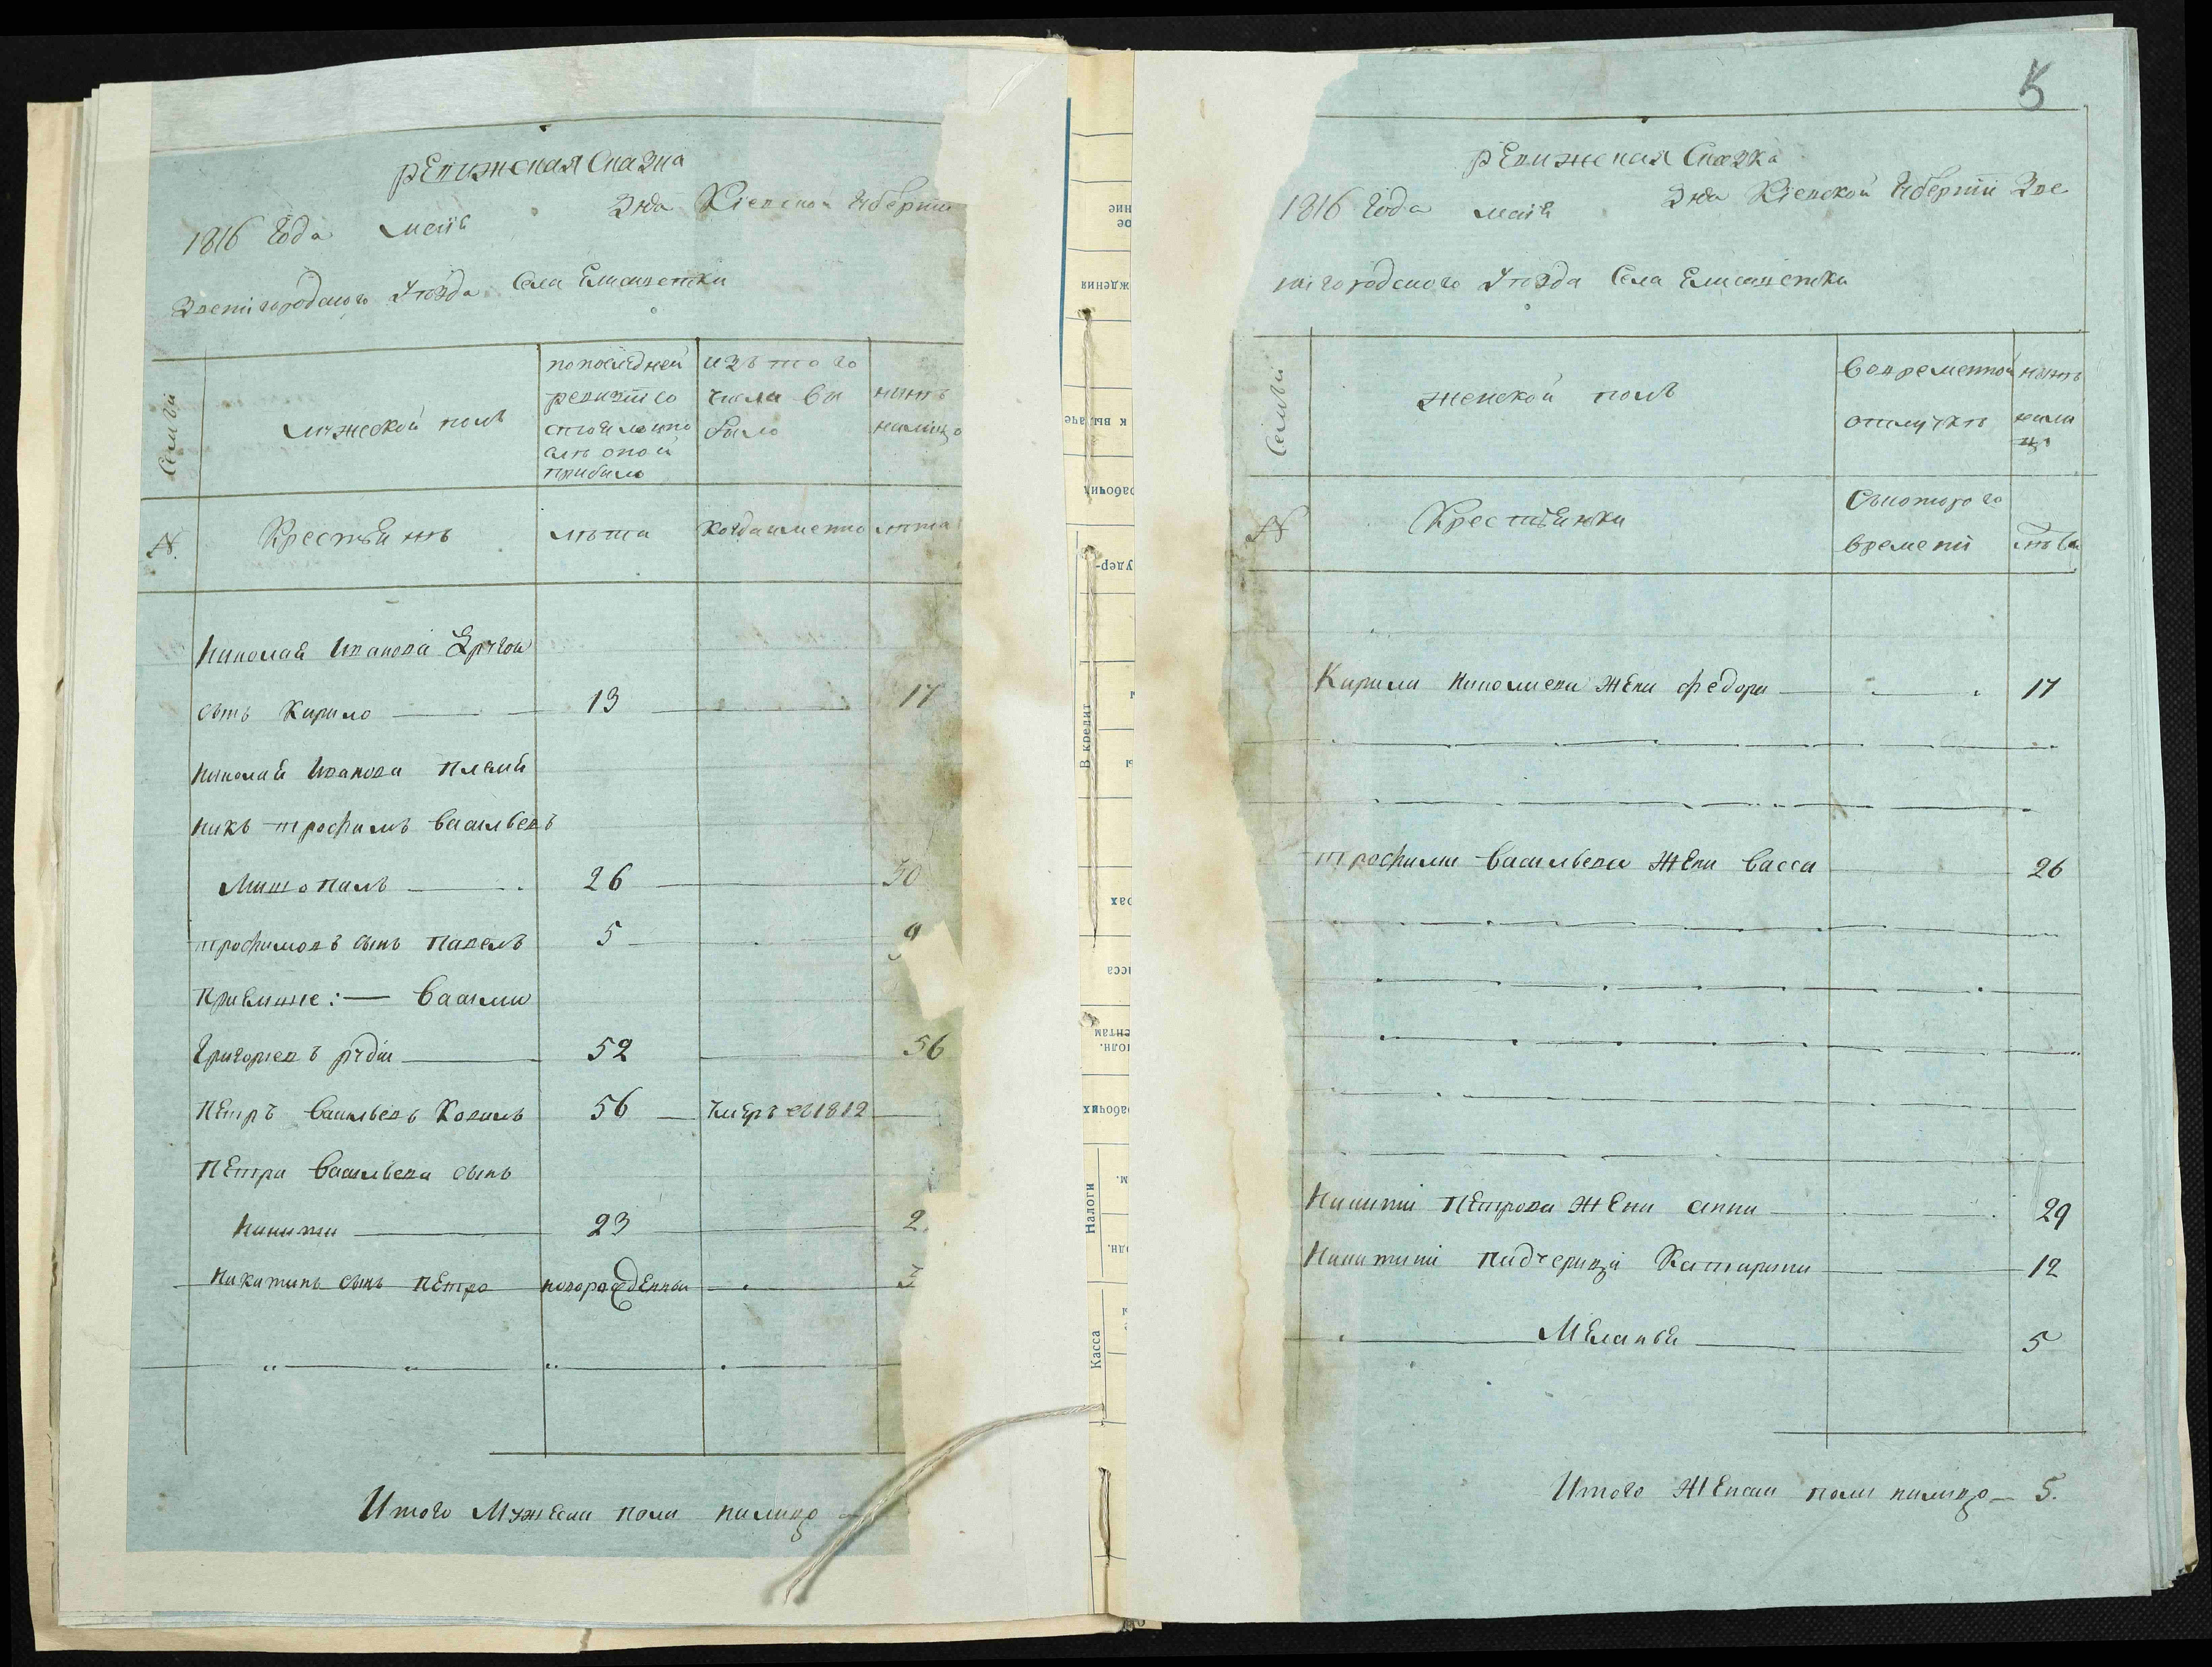 рЕвижская Сказка
1816 года маія Дня Кіевской Губерніи
Звенігородского Уезда Села Елисаветки
Семьи
мужеской полъ
попоследней ревизіи состояло и после оной прибыло
изъ того числа выбыло
ныне налицо
№
Крестьяне
лѣта
Когда именно
лѣта
Николая Иванова другой
сынъ Кирило 13 17
Николая Иванова племя
никъ трофимъ васильевъ
26 30
трофимовъ сынъ павелъ 5 9
васили
Григорьевъ 52 56
пЕтръ васильевъ Коваль 56 умеръ в 1812
пЕтра васильева сынъ
Никита 23 2
Никитинъ сынъ пЕтро новорожденны 3
Итого мужеска пола налицо
5
рЕвижская Сказка
1816 года маія Дня Кіевской Губерніи Зве
нігородского Уезда Села Елисаветки
Семьи
женской полъ
вовременной отлучке
ныне налицо
№
Крестьянки
Скоторого времени
лѣта
Кирила Николаева жЕна федора 17
трофима васильева жЕна васса 26
Никиты пЕтрова жЕна анна 29
Никитины падчерица Катарина 12
МЕланья 5
Итого жЕнска пола налицо 5.
В кредит
Налоги
Касса
ждения
к выдаче
рабочих
удер-